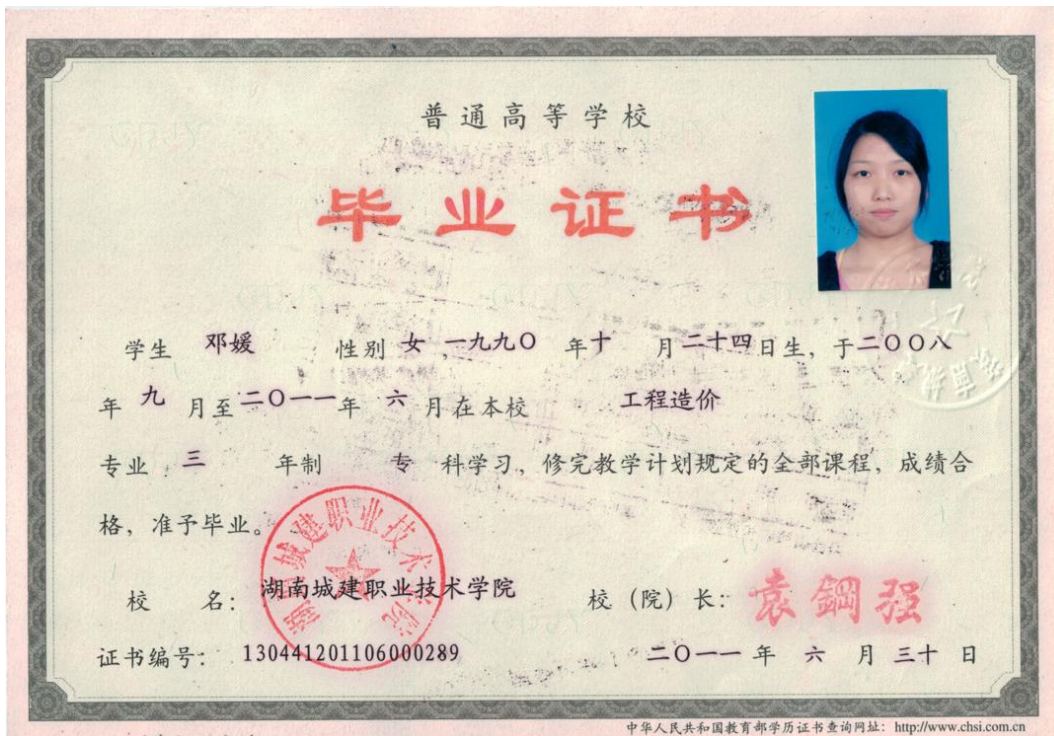 普通高等学校
毕业证书
学生 邓媛 性别 女,一九九〇 年十 月二十四日生，于二〇〇八
年 九 月至二〇一一年 六 月在本校 工程造价
专业 三 年制 专 科学习，修完教学计划规定的全部课程，成绩合
格，准予毕业。
湖南城建职业技术学院
校 名： 湖南城建职业技术学院 校（院）长： 袁鋼强
证书编号： 130441201106000289 二〇一一 年 六 月 三十 日
中华人民共和国教育部学历证书查询网址：http://www.chsi.com.cn